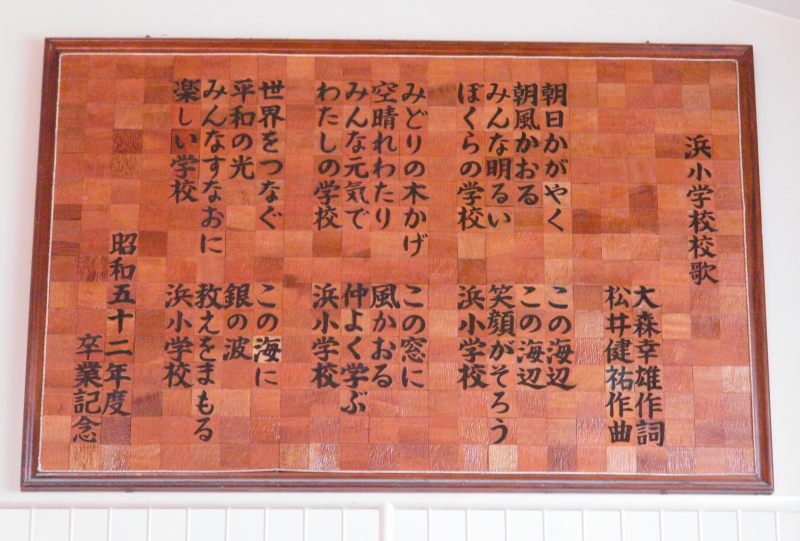 浜小学校校歌
大森幸雄作詞
松井健祐作曲
朝日かがやく
朝風かおる
みんな明るい
ぼくらの学校
この海辺
この海辺
笑顔がそろう
浜小学校
みどりの木かげ
空晴れわたり
みんな元気で
わたしの学校
この窓に
風かおる
仲よく学ぶ
浜小学校
世界をつなぐ
平和の光
みんなすなおに
楽しい学校
この海に
銀の波
教えをまもる
浜小学校
昭和五十二年度
卒業記念